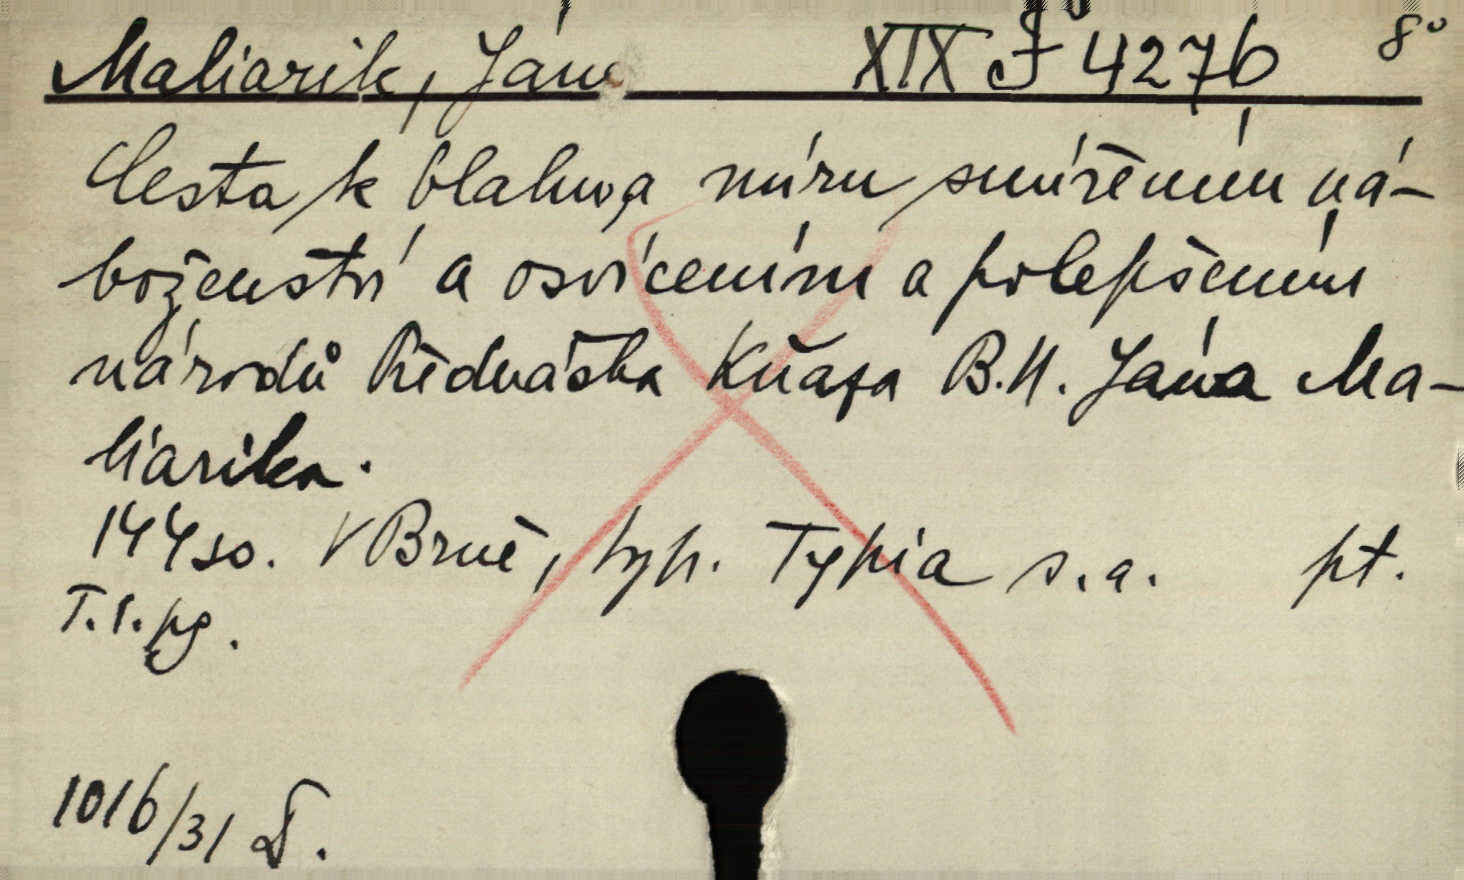 Maliarik, Ján XIX F 4276 8°
Cesta k blahu a míru smířením ná-
boženství a osvícením a polepšením
národů Přednáška Kňaza B.H. Jána Ma-
liarika.
144 so. V Brně, typ. Typia s.a. pt.
T.l.pg.
1016/31 D.